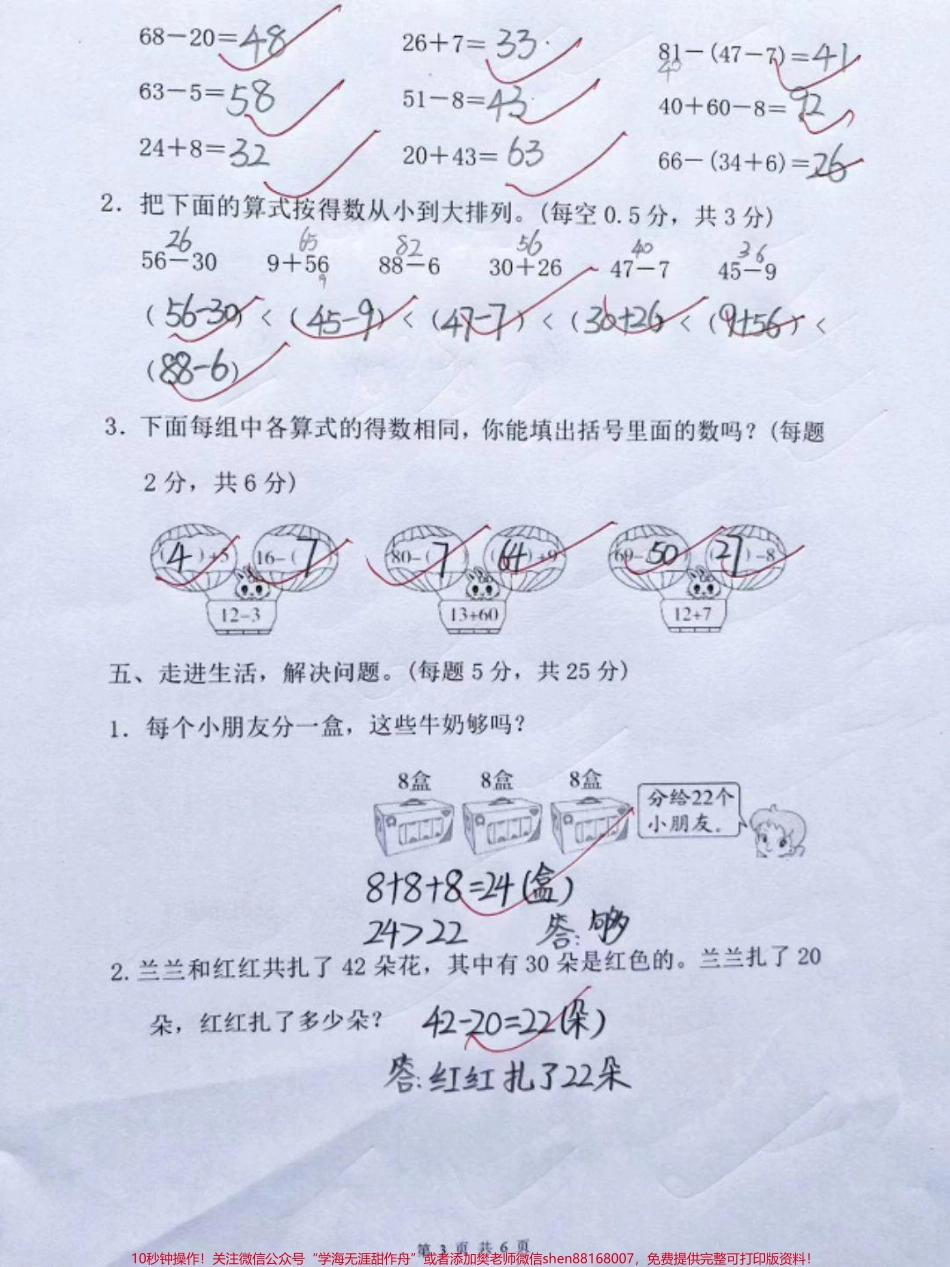 68－20＝48 26＋7＝33 81－(47－7)＝41
40
63－5＝58 51－8＝43 40＋60－8＝92
24＋8＝32 20＋43＝63 66－(34＋6)＝26
2. 把下面的算式按得数从小到大排列。(每空0.5分，共3分)
26 65 82 56 40 36
56－30 9＋56 88－6 30＋26 47－7 45－9
9
(56-30)＜(45-9)＜(47-7)＜(30+26)＜(9+56)＜
(88-6)
3. 下面每组中各算式的得数相同，你能填出括号里面的数吗？(每题
2分，共6分)
(4)+5 16-(7 80-(7 (64)+9 69-50 (27)-8
12-3 13+60 12+7
五、走进生活，解决问题。(每题5分，共25分)
1. 每个小朋友分一盒，这些牛奶够吗？
8盒 8盒 8盒
分给22个
小朋友。
8+8+8=24(盒)
24>22 答:够
2. 兰兰和红红共扎了42朵花，其中有30朵是红色的。兰兰扎了20
朵，红红扎了多少朵？ 42-20=22(朵)
答:红红扎了22朵
第 3 页 共 6 页
10秒钟操作！关注微信公众号“学海无涯甜作舟”或者添加樊老师微信shen88168007，免费提供完整可打印版资料！